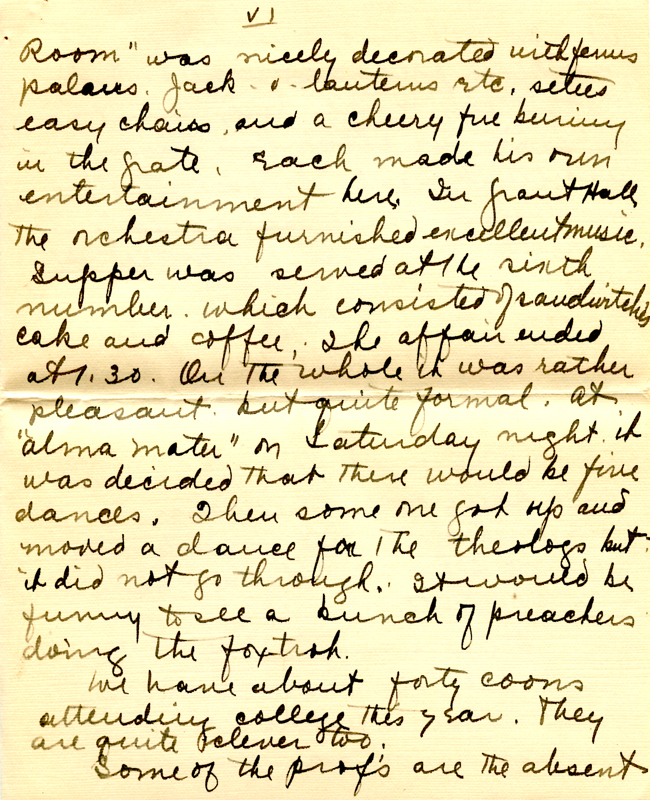 VI
Room" was nicely decorated with ferns
palms. Jack-o-lanterns etc. setees
easy chairs, and a cheery fire burning
in the grate. Each made his own
entertainment here. In Grant Hall
the orchestra furnished excellent music.
Supper was served at the sixth
number. which consisted of sandwitches
cake and coffee. The affair ended
at 1.30. On the whole it was rather
pleasant. but quite formal. At
"alma mater" on Saturday night. it
was decided that there would be five
dances. Then some one got up and
moved a dance for the theologs but
it did not go through. It would be
funny to see a bunch of preachers
doing the foxtrot.
We have about forty coons
attending college this year. They
are quite clever too.
Some of the prof's are the absent